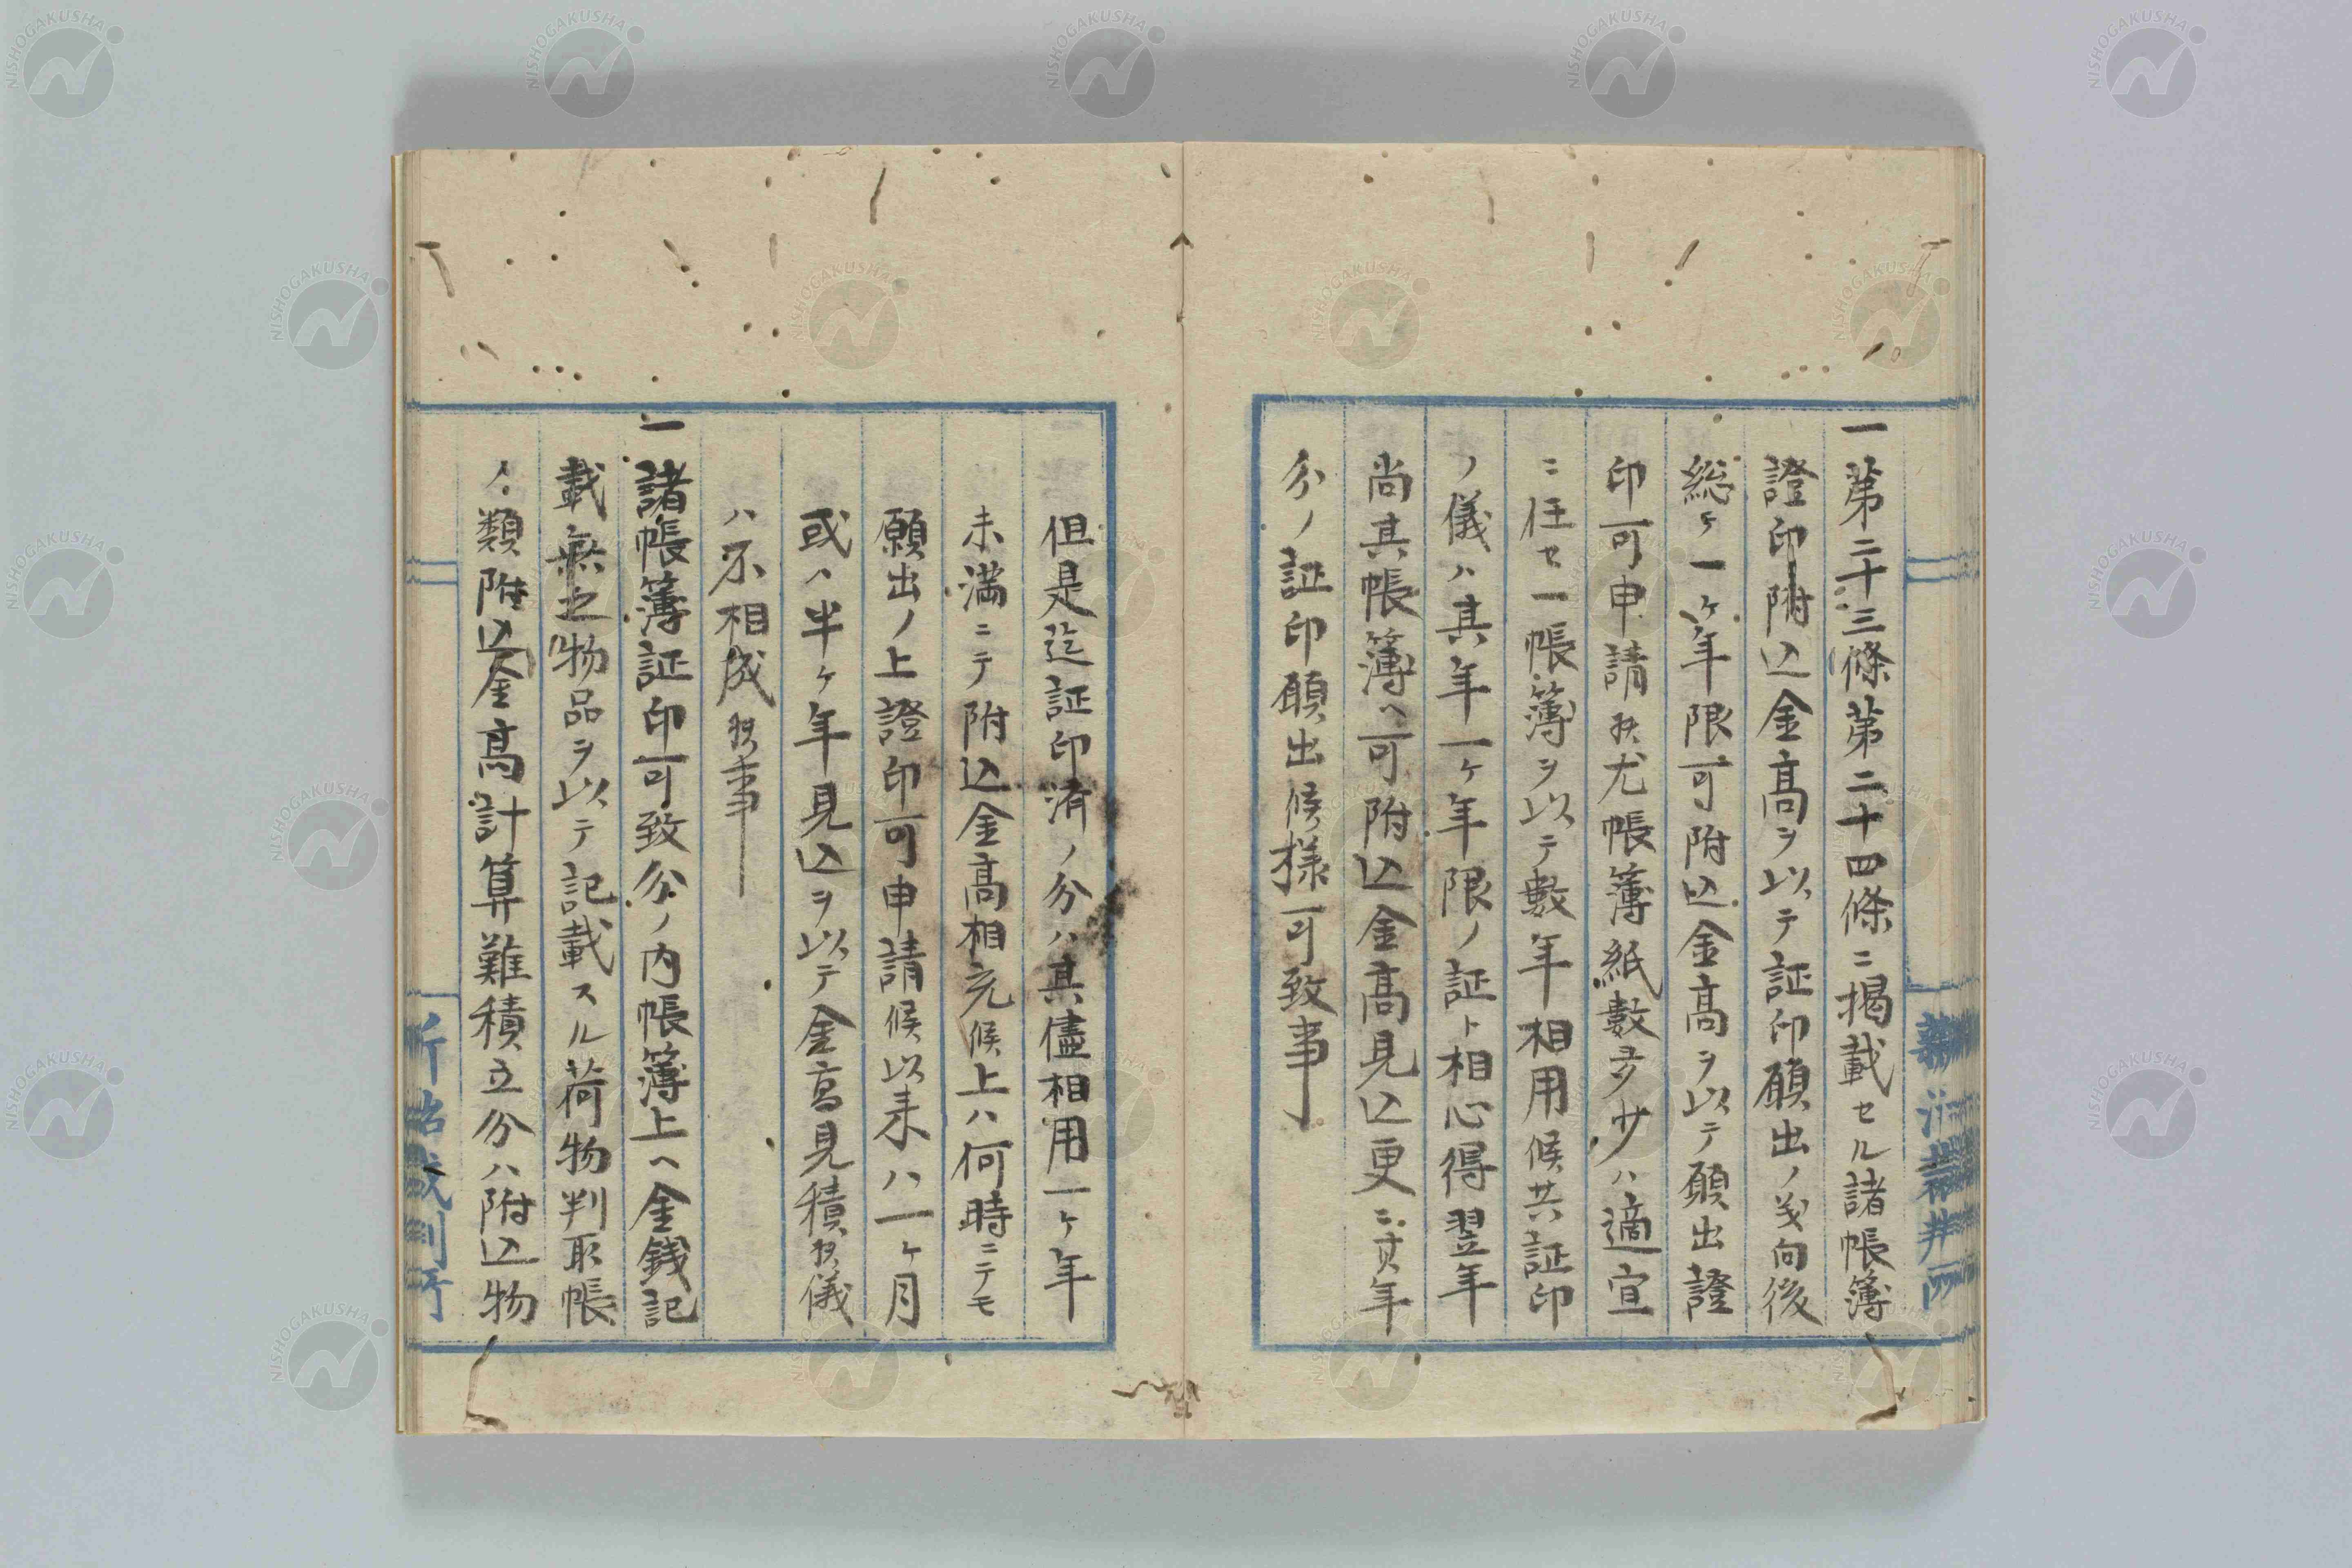 一第二十三條第二十四條ニ掲載セル諸帳簿
證印附込金高ヲ以テ証印願出ノ義向後
総テ一ヶ年限可附込金高ヲ以テ願出證
印可申請候尤帳簿紙數多少ハ適宜
ニ任セ一帳簿ヲ以テ數年相用候共証印
ノ儀ハ其年一ヶ年限ノ証ト相心得翌年
尚其帳簿ヘ可附込金高見込更ニ其年
分ノ証印願出候様可致事
但是迄証印済ノ分ハ其儘相用一ヶ年
未満ニテ附込金高相充候上ハ何時ニテモ
願出ノ上證印可申請候以来ハ一ヶ月
或ハ半ヶ年見込ヲ以テ金高見積候儀
ハ不相成候事
一諸帳簿証印可致分ノ内帳簿上ヘ金銭記
載無之物品ヲ以テ記載スル荷物判取帳
ノ類附込金高計算難積立分ハ附込物
NISHOGAKUSHA